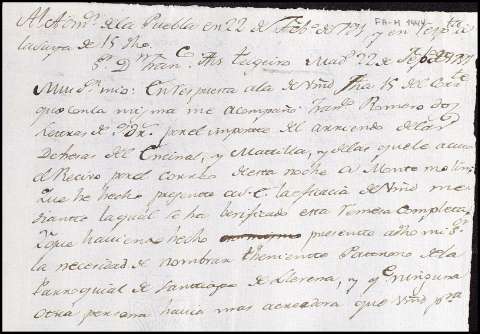 Al Adm.r de la Puebla en 22 de de 1791 y en resp.ta
la suya de 15 dho.
S.r D.n Fran.co Madrid 22 de de 1791
Muy S.r mio: En respuesta a la de Vmd fha 15 del Corr.te
que con la misma me acompaña Fran.co Romero dos
letras de por el importe del arriendo de las
Dehesas del Encinal, y Mattilla, y de las que le acuso
el Recivo por el correo de esta noche a Montemolin
he hecho presente a S. E. la eficacia de Vmd me
diante la qual se ha verificado esta remesa completta,
Y que haviendo hecho presentte a dho mi S.r
la necesidad de nombrar theniente Pattrono de la
Parroquial de Santtiago de Llerena, y q.e ninguna
otra persona havia mas acrehedora que Vmd p.ra
FA-M